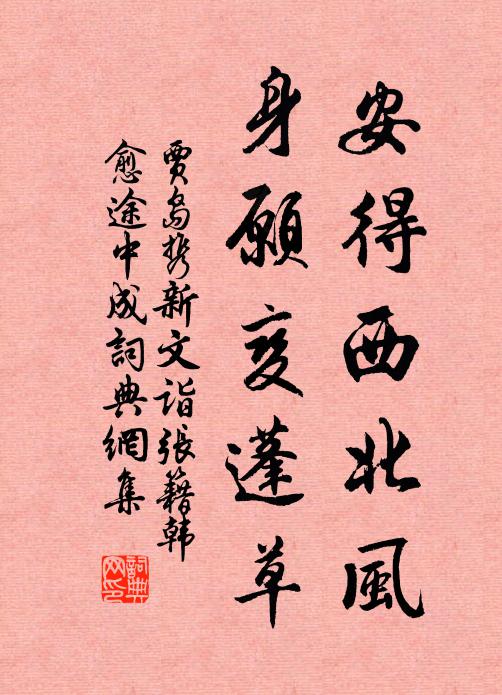 安得西北風
身願變蓬草
賈島携新文詣張籍韓
愈途中成詞典網集
詞典网印